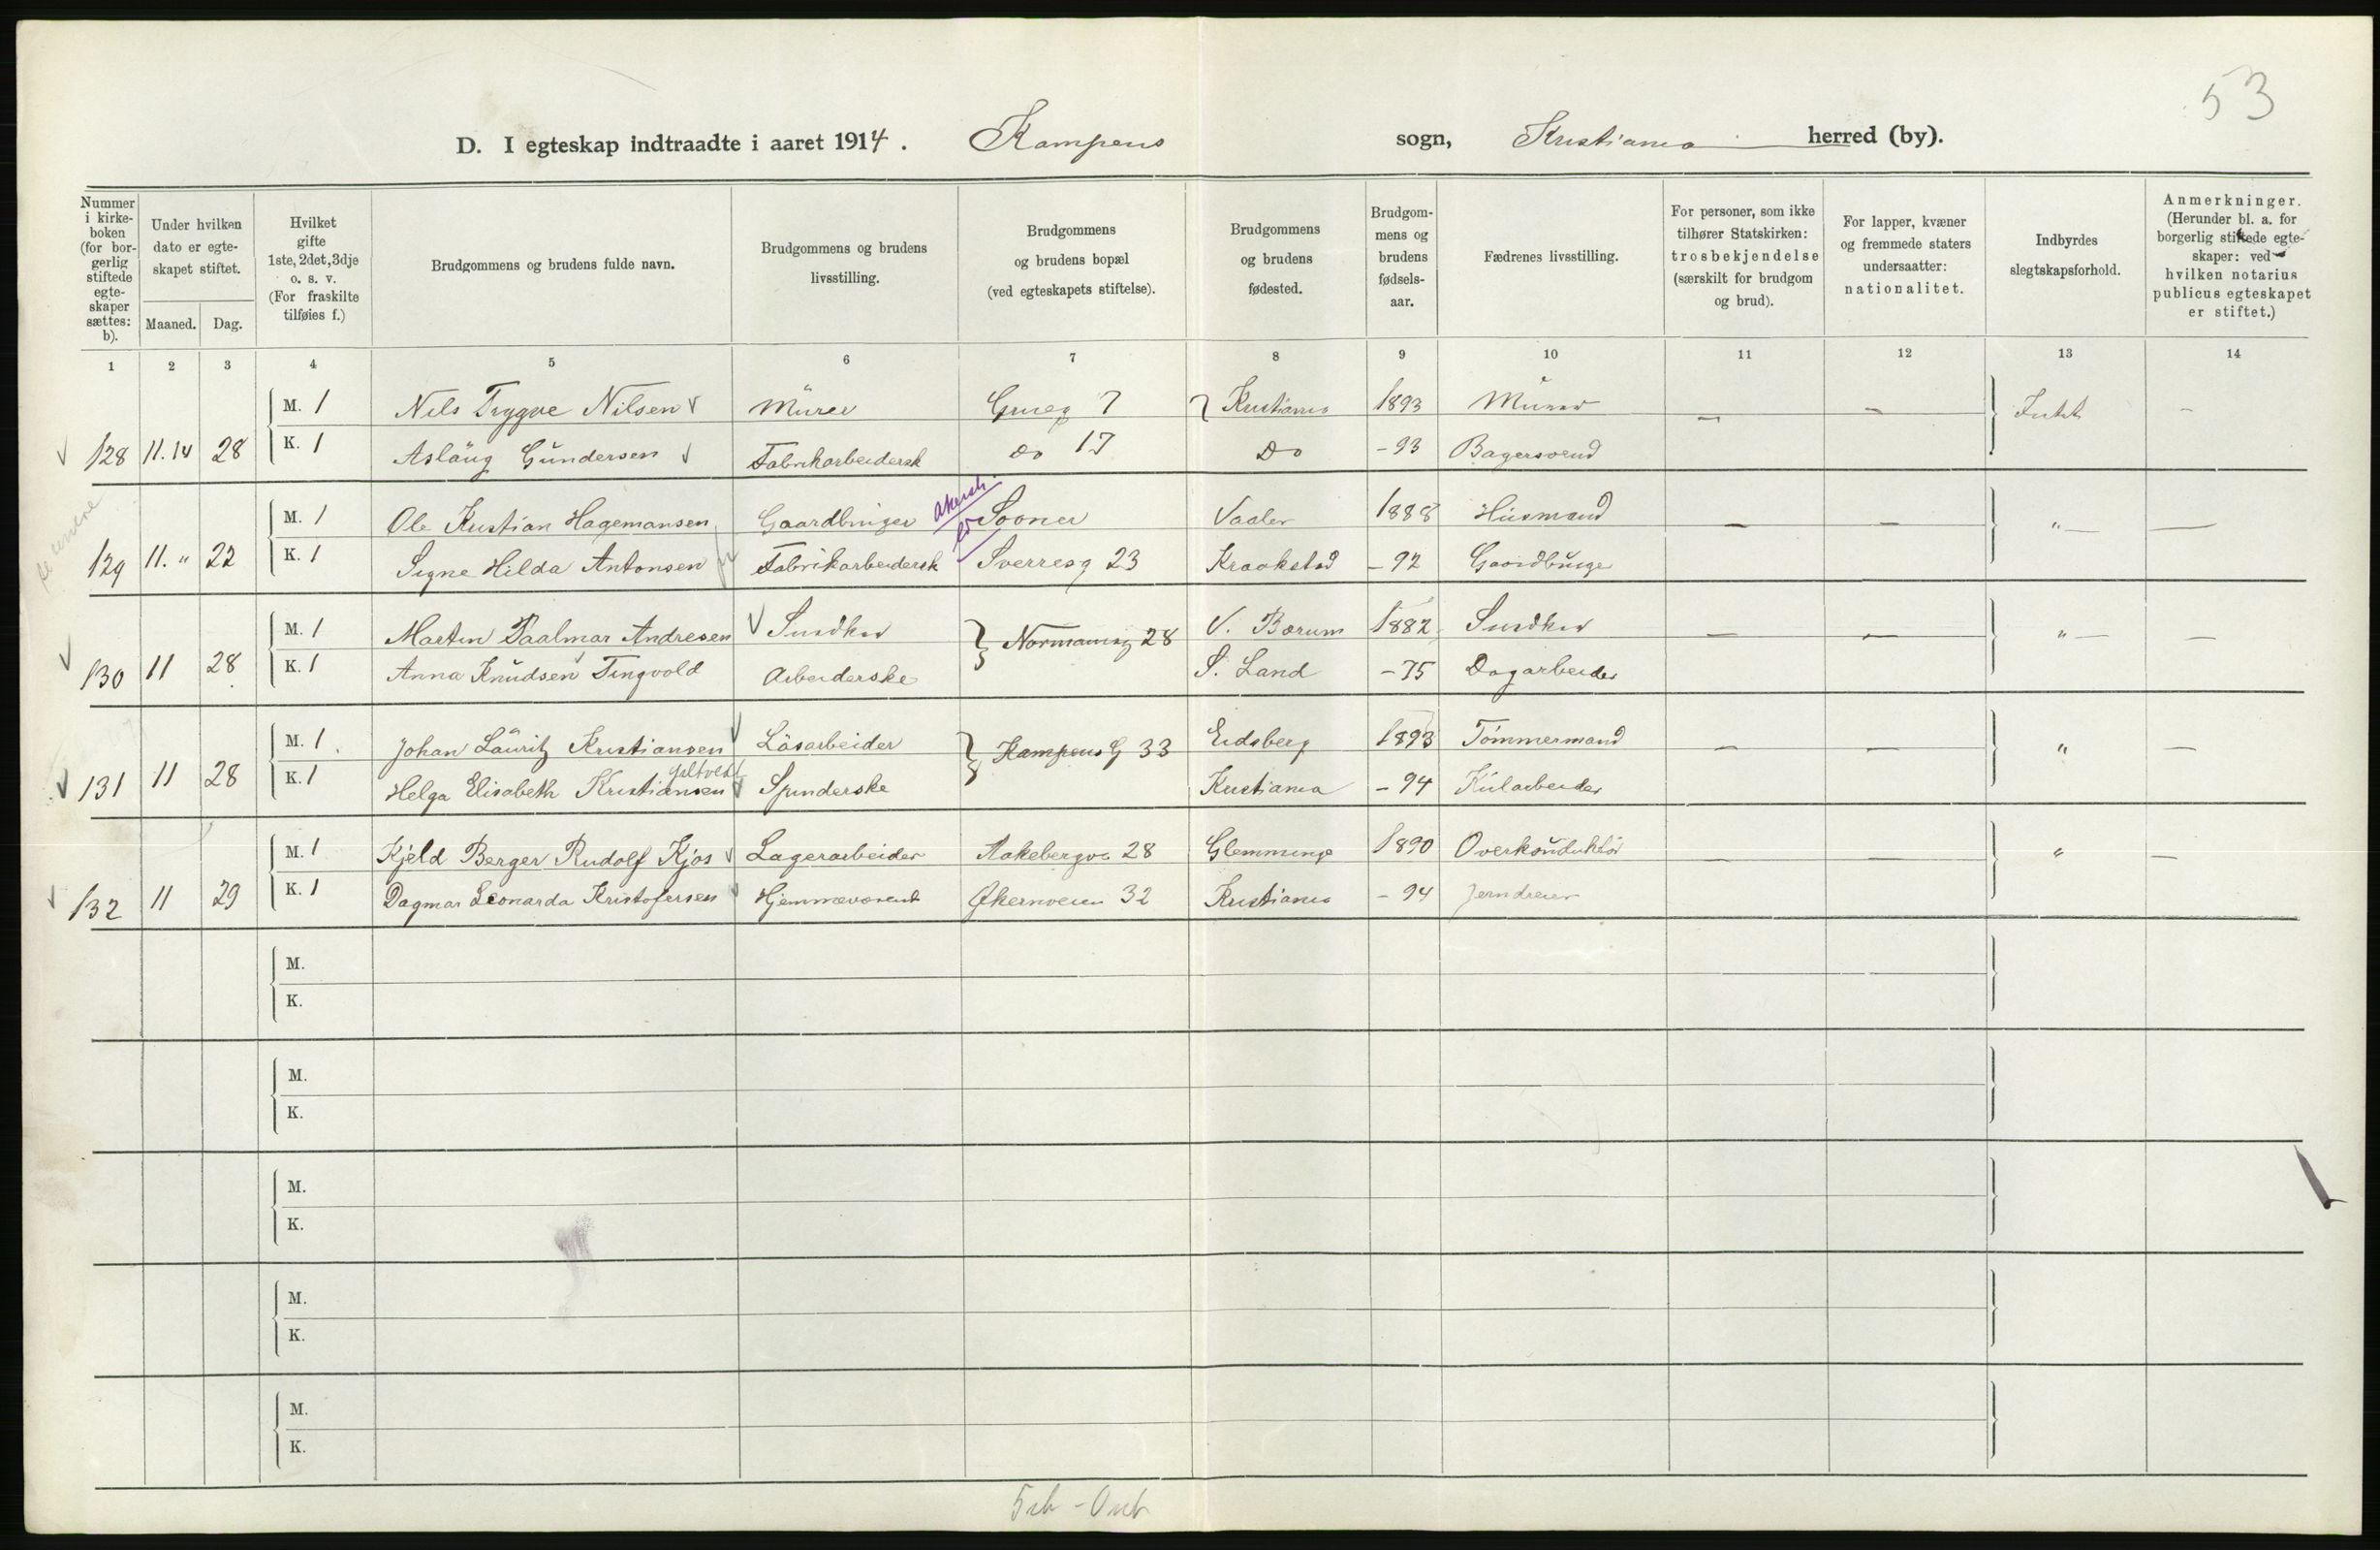 53
D. I egteskap indtraadte i aaret 1914. Kampens sogn, Kristiania herred (by).
Nummer i kirke-boken (for bor-gerlig stiftede egte-skaper sættes: b).
Under hvilken dato er egte-skapet stiftet.
Maaned. Dag.
Hvilket gifte 1ste, 2det, 3dje o. s. v. (For fraskilte tilføies f.)
Brudgommens og brudens fulde navn.
Brudgommens og brudens livsstilling.
Brudgommens og brudens bopæl (ved egteskapets stiftelse).
Brudgommens og brudens fødested.
Brudgom-mens og brudens fødsels-aar.
Fædrenes livsstilling.
For personer, som ikke tilhører Statskirken: trosbekjendelse (særskilt for brudgom og brud).
For lapper, kvæner og fremmede staters undersaatter: nationalitet.
Indbyrdes slegtskapsforhold.
Anmerkninger. (Herunder bl. a. for borgerlig stiftede egte-skaper: ved hvilken notarius publicus egteskapet er stiftet.)
1 2 3 4 5 6 7 8 9 10 11 12 13 14
M. 1 Nils Trygve Nilsen Murer Grueg 7 Kristiania 1893 Murer — — Intet —
128 11.14 28 K. 1 Aslaug Gundersen Fabrikarbeidersk Do 17 Do - 93 Bagersvend
M. 1 Ole Kristian Hagemansen Gaardbruger Sooner Vaaler 1888 Husmand — — " — —
129 11. " 22 K. 1 Signe Hilda Antonsen Fabrikarbeidersk Sverresg 23 Kraakstad - 92 Gaardbruger
M. 1 Martin Paalmar Andresen Snedker Normannsg 28 V. Bærum 1882 Snedker — — " — —
130 11 28 K. 1 Anna Knudsen Tingvold Arbeiderske S. Land - 75 Dagarbeider
M. 1. Johan Lauritz Kristiansen Løsarbeider Kampens G 33 Eidsberg 1893 Tømmermand — — " —
131 11 28 K. 1 Helga Elisabeth Kristiansen Spinderske Kristiania - 94 Kularbeider
M. 1 Kjeld Berger Rudolf Kjos Lagerarbeider Aakebergv. 28 Glemminge 1890 Overkonduktør — — " —
132 11 29 K. 1 Dagmar Leonarda Kristofersen Hjemmeværende Økernveien 32 Kristiania - 94 Jerndreier
M.
K.
M.
K.
M.
K.
M.
K.
M.
K.